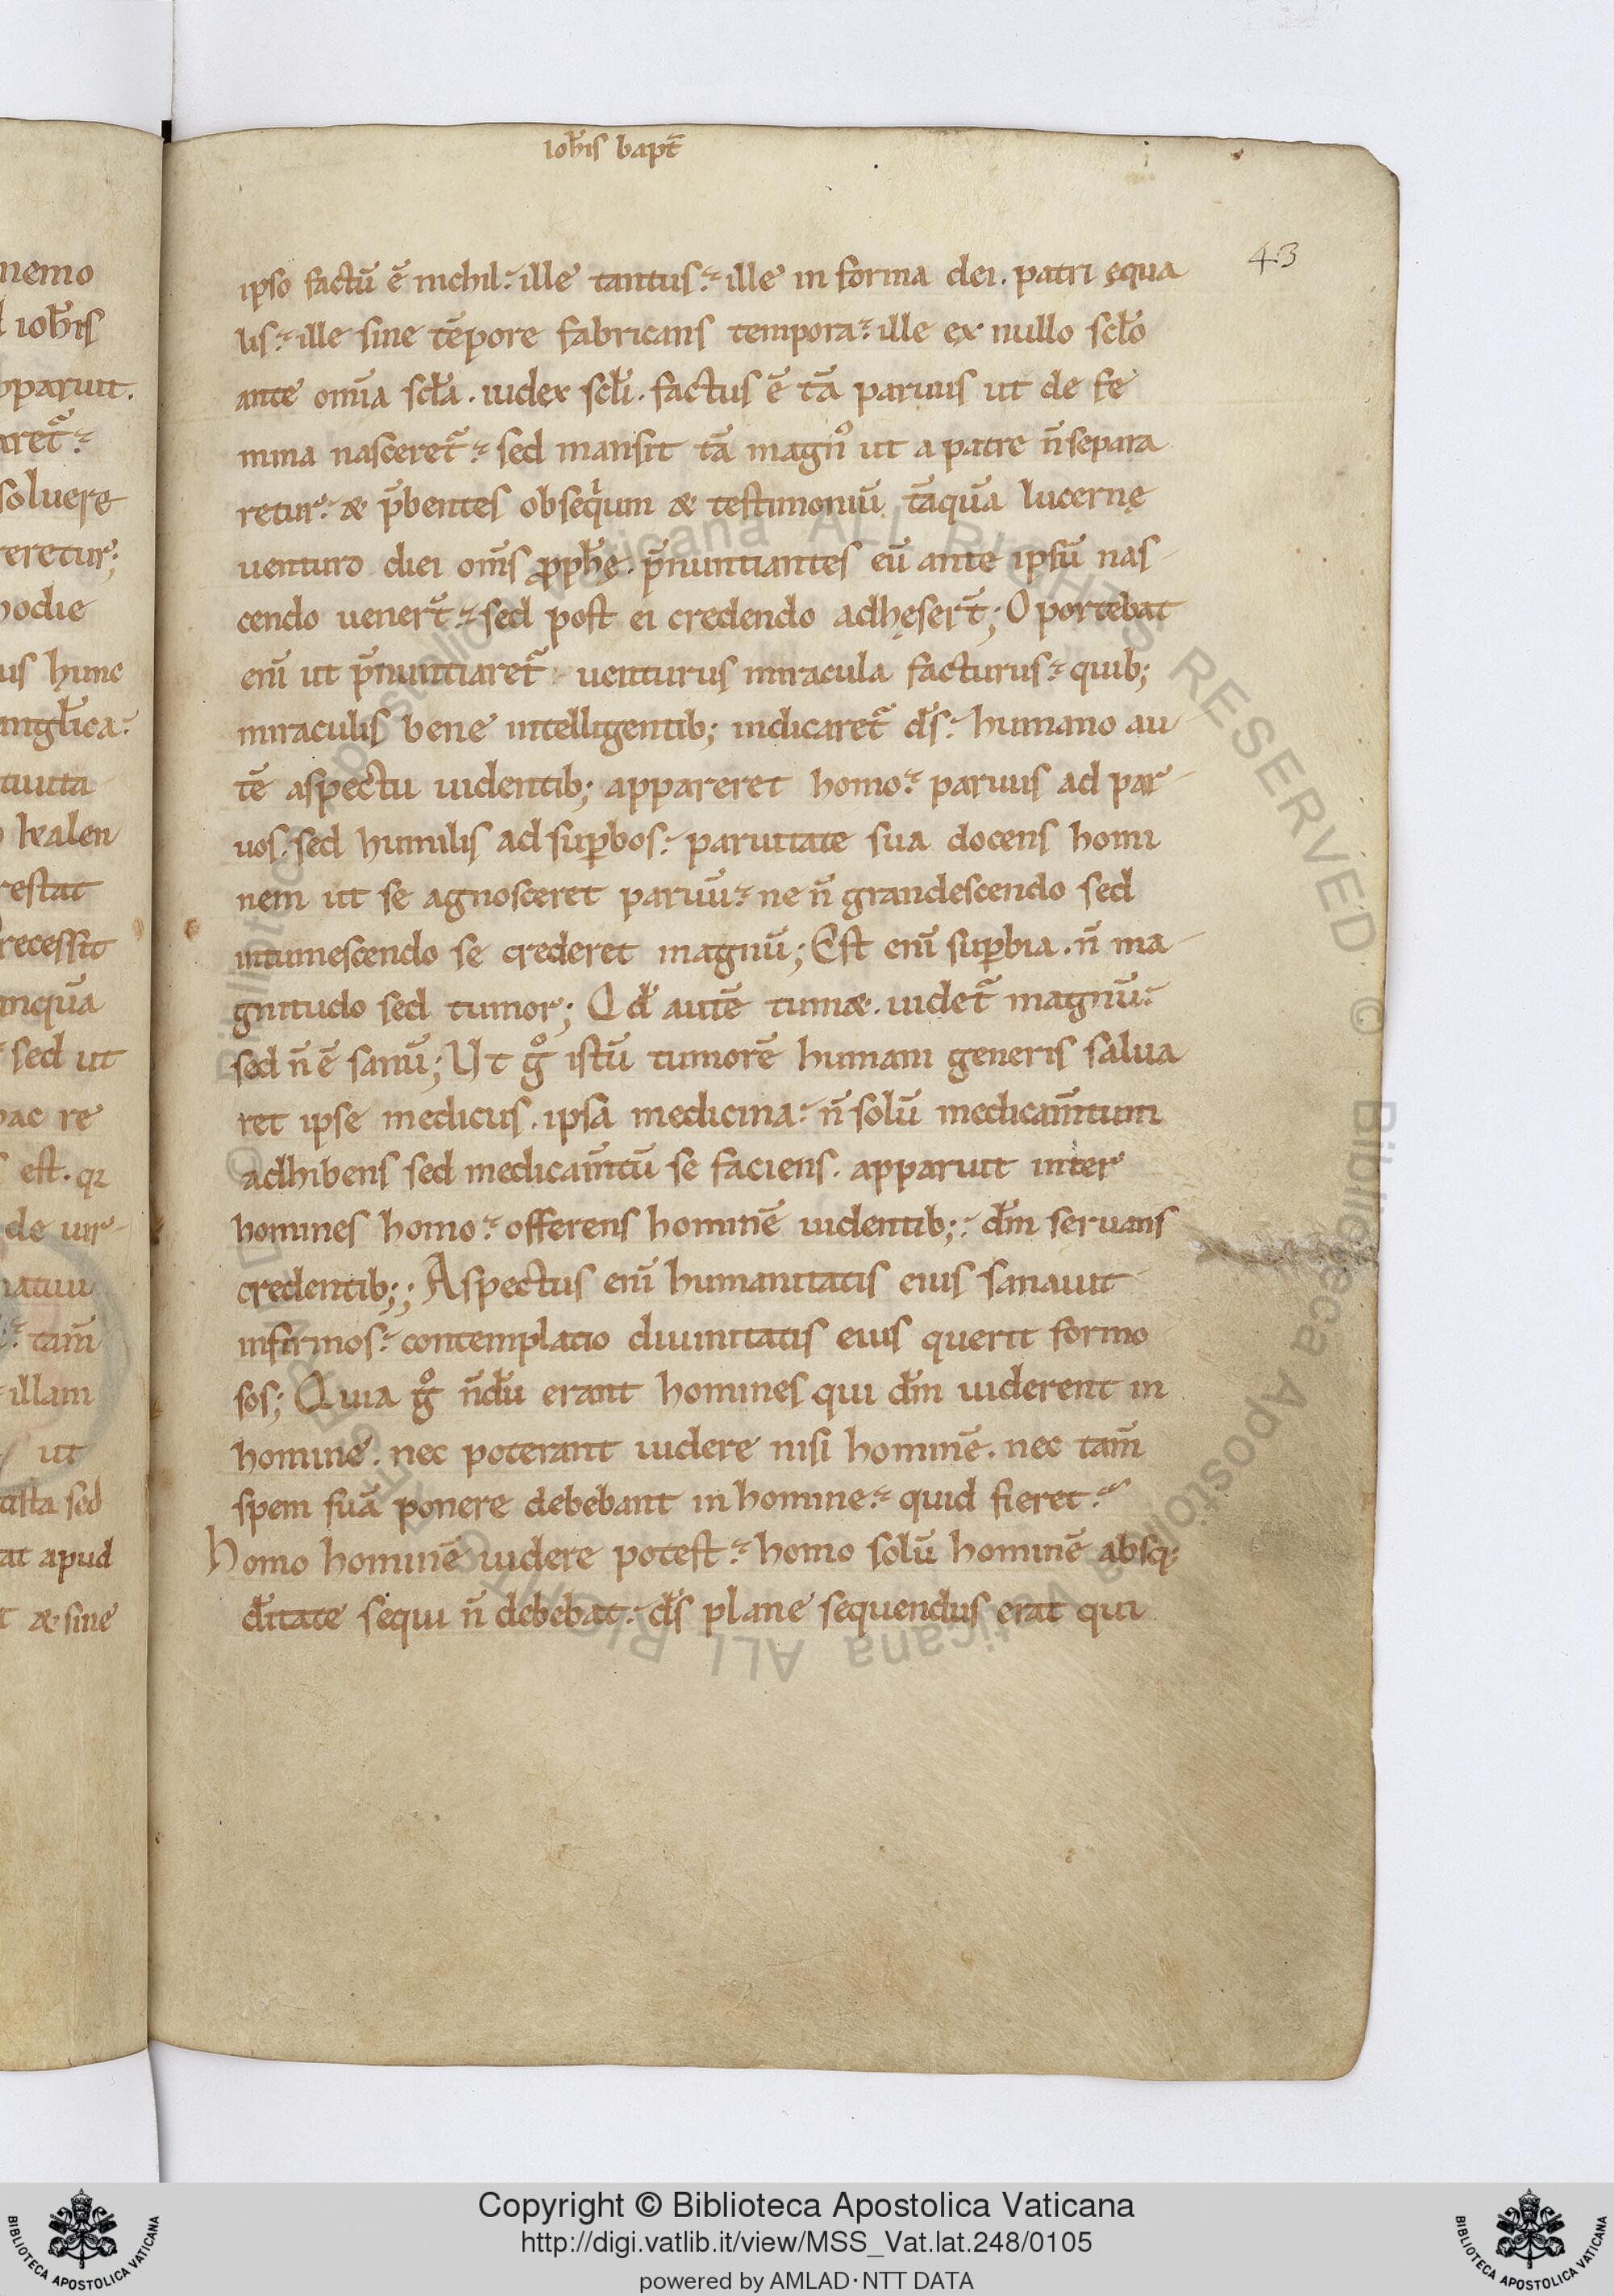 ioh̅is bapt̅
43
ipso factū ē nichil. ille tantus. ille in forma dei. patri ęqua
lis. ille sine tēpore fabricans tempora. ille ex nullo scło
ante om̅ia scła. iudex scłi. factus ē tā paruus ut de fe
mina nasceret᷑. sed mansit tā magnꝰ ut a patre n̅ separa
retur. & p̅bentes obseqͥum & testimoniū tāquā lucernę
venturo diei om̅s ꝓph̅ę. p̅nuntiantes eū ante ipsū nas
cendo uener̅t. sed post ei credendo adhęser̅t; Oportebat
eni̅ ut p̅nuntiaret᷑ uenturus miracula facturus. quib;
miraculis bene intelligentib; indicaret᷑ ds̅. humano au
tē aspectu uidentib; appareret homo. paruus ad par
uos. sed humilis ad supbos. paruitate sua docens homi
nem ut se agnosceret paruū. ne n̅ grandescendo sed
intumescendo se crederet magnū; Est eni̅ supbia. n̅ ma
gnitudo sed tumor; Qd̅ autē tum&. uidet᷑ magnū.
sed n̅ ē sanū; Ut gͦ istū tumorē humani generis salua
ret ipse medicus. ipsa medicina. n̅ solū medicam̅tum
adhibens sed medicam̅tū se faciens. apparuit inter
homines homo. offerens hominē uidentib;. dm̅ seruans
credentib;; Aspectus eni̅ humanitatis eius sanauit
infirmos. contemplatio diuinitatis eius querit formo
sos; Quia gͦ n̅dū erant homines qui dm̅ uiderent in
homine. nec poterant uidere nisi hominē. nec tam̅
spem suā ponere debebant in homine. quid fieret.
Homo hominē uidere potest. homo solū hominē absq;
d̅itate sequi n̅ debebat. ds̅ plane sequendus erat qui
nemo
ioh̅is
soluere
odie
us hunc
restat
recessit
sed ut
ac re
est. qꝛ
de uir
tam̅
illam
ut
sed
at apud
& sine
© Biblioteca Apostolica Vaticana ALL RIGHTS RESERVED © Biblioteca Apostolica Vaticana ALL RIGHTS RESERVED
Copyright © Biblioteca Apostolica Vaticana
http://digi.vatlib.it/view/MSS_Vat.lat.248/0105
powered by AMLAD·NTT DATA
BIBLIOTECA APOSTOLICA VATICANA
BIBLIOTECA APOSTOLICA VATICANA